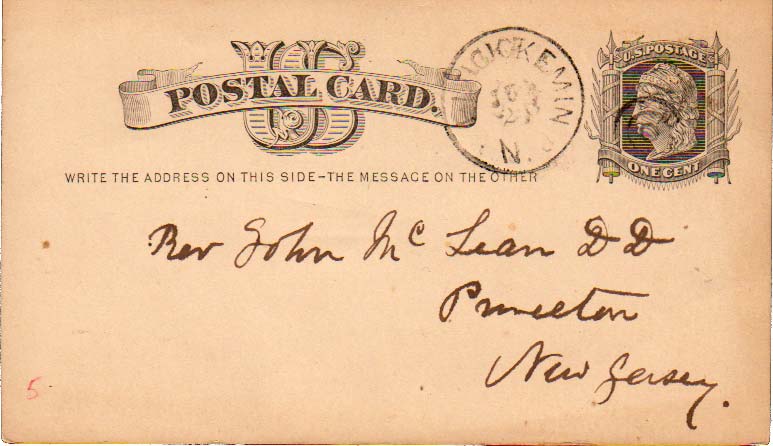 US
POSTAL CARD.
WRITE THE ADDRESS ON THIS SIDE-THE MESSAGE ON THE OTHER
U.S. POSTAGE
ONE CENT
Rev John Mc Lean D D
Princeton
New Jersey.
5